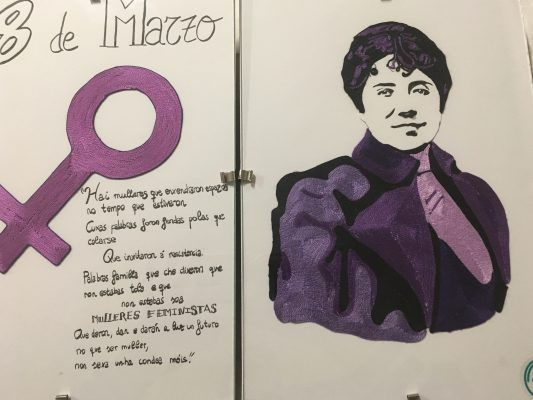 8 de MARZO
"Hai mulleres que encenderon espazos
no tempo que estiveron.
Cuxas palabras foron fendas polas que
colarse
Que invitaron á resistencia.
Palabras familia que che dixeron que
non estabas tola e que
non estabas soa
MULLERES FEMINISTAS
Que deron, dan e darán a luz un futuro
no que ser muller,
non sexa unha condea máis."